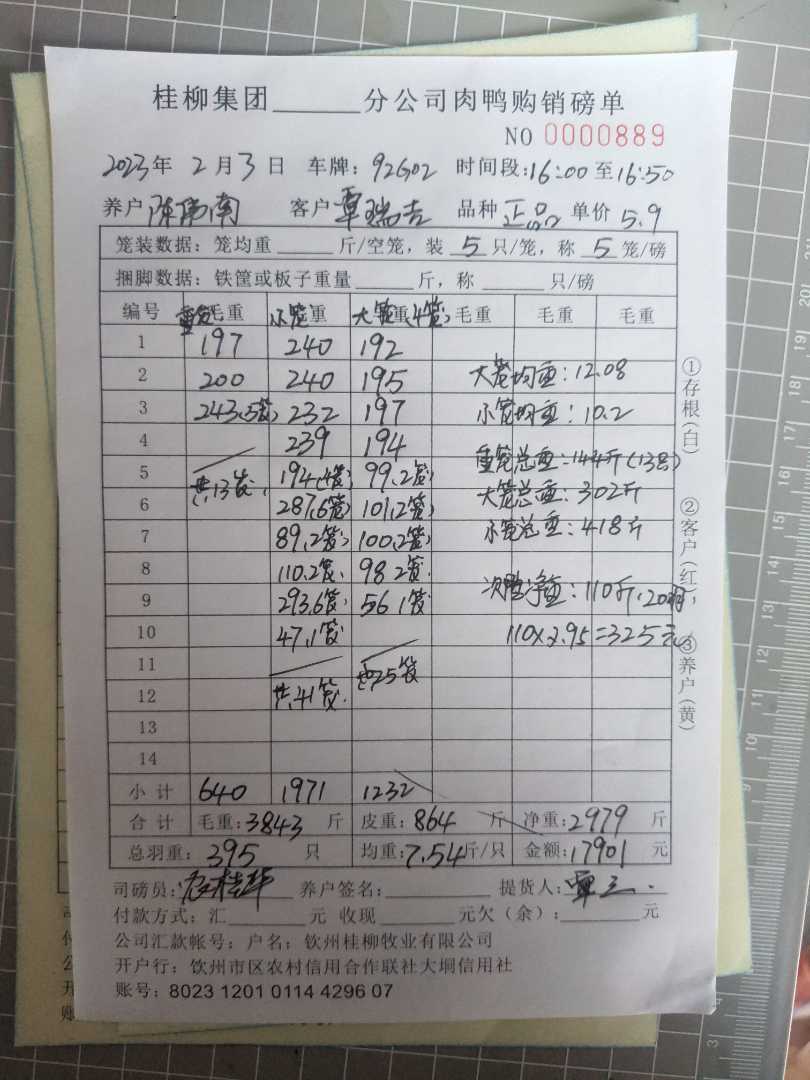 桂柳集团______分公司肉鸭购销磅单
NO 0000889
2023年 2月3日 车牌:92G02 时间段:16:00至16:50
养户 陈伟南 客户 覃瑞吉 品种 正品 单价 5.9
笼装数据: 笼均重 ______ 斤/空笼, 装 5 只/笼, 称 5 笼/磅
捆脚数据: 铁筐或板子重量 ______ 斤, 称 ______ 只/磅
编号 重笼毛重 小笼重 大笼重(4笼) 毛重 毛重 毛重
1 197 240 192
2 200 240 195 大笼均重:12.08
3 243(5笼) 232 197 小笼均重:10.2
4 239 194 重笼总重:144斤(13笼)
5 共13笼 194(4笼) 99.2笼 大笼总重:302斤
6 287.6笼 101.2笼 小笼总重:418斤
7 89.2笼 100.2笼
8 110.2笼 98 2笼 次鸭净重:110斤.20羽
9 293.6笼 56.1笼
10 47.1笼 110×2.95=325元
11 共25笼
12 共41笼
13
14
小计 640 1971 1232
合计 毛重:3843 斤 皮重:864 斤 净重:2979 斤
总羽重:395 只 均重:7.54斤/只 金额:17901 元
司磅员: 养户签名:______ 提货人:覃三
付款方式:汇______元 收现______元欠(余):______元
公司汇款帐号; 户名; 钦州桂柳牧业有限公司
开户行: 饮州市区农村信用合作联社大垌信用社
账号: 8023 1201 0114 4296 07
①存根(白) ②客户(红) ③养户(黄)